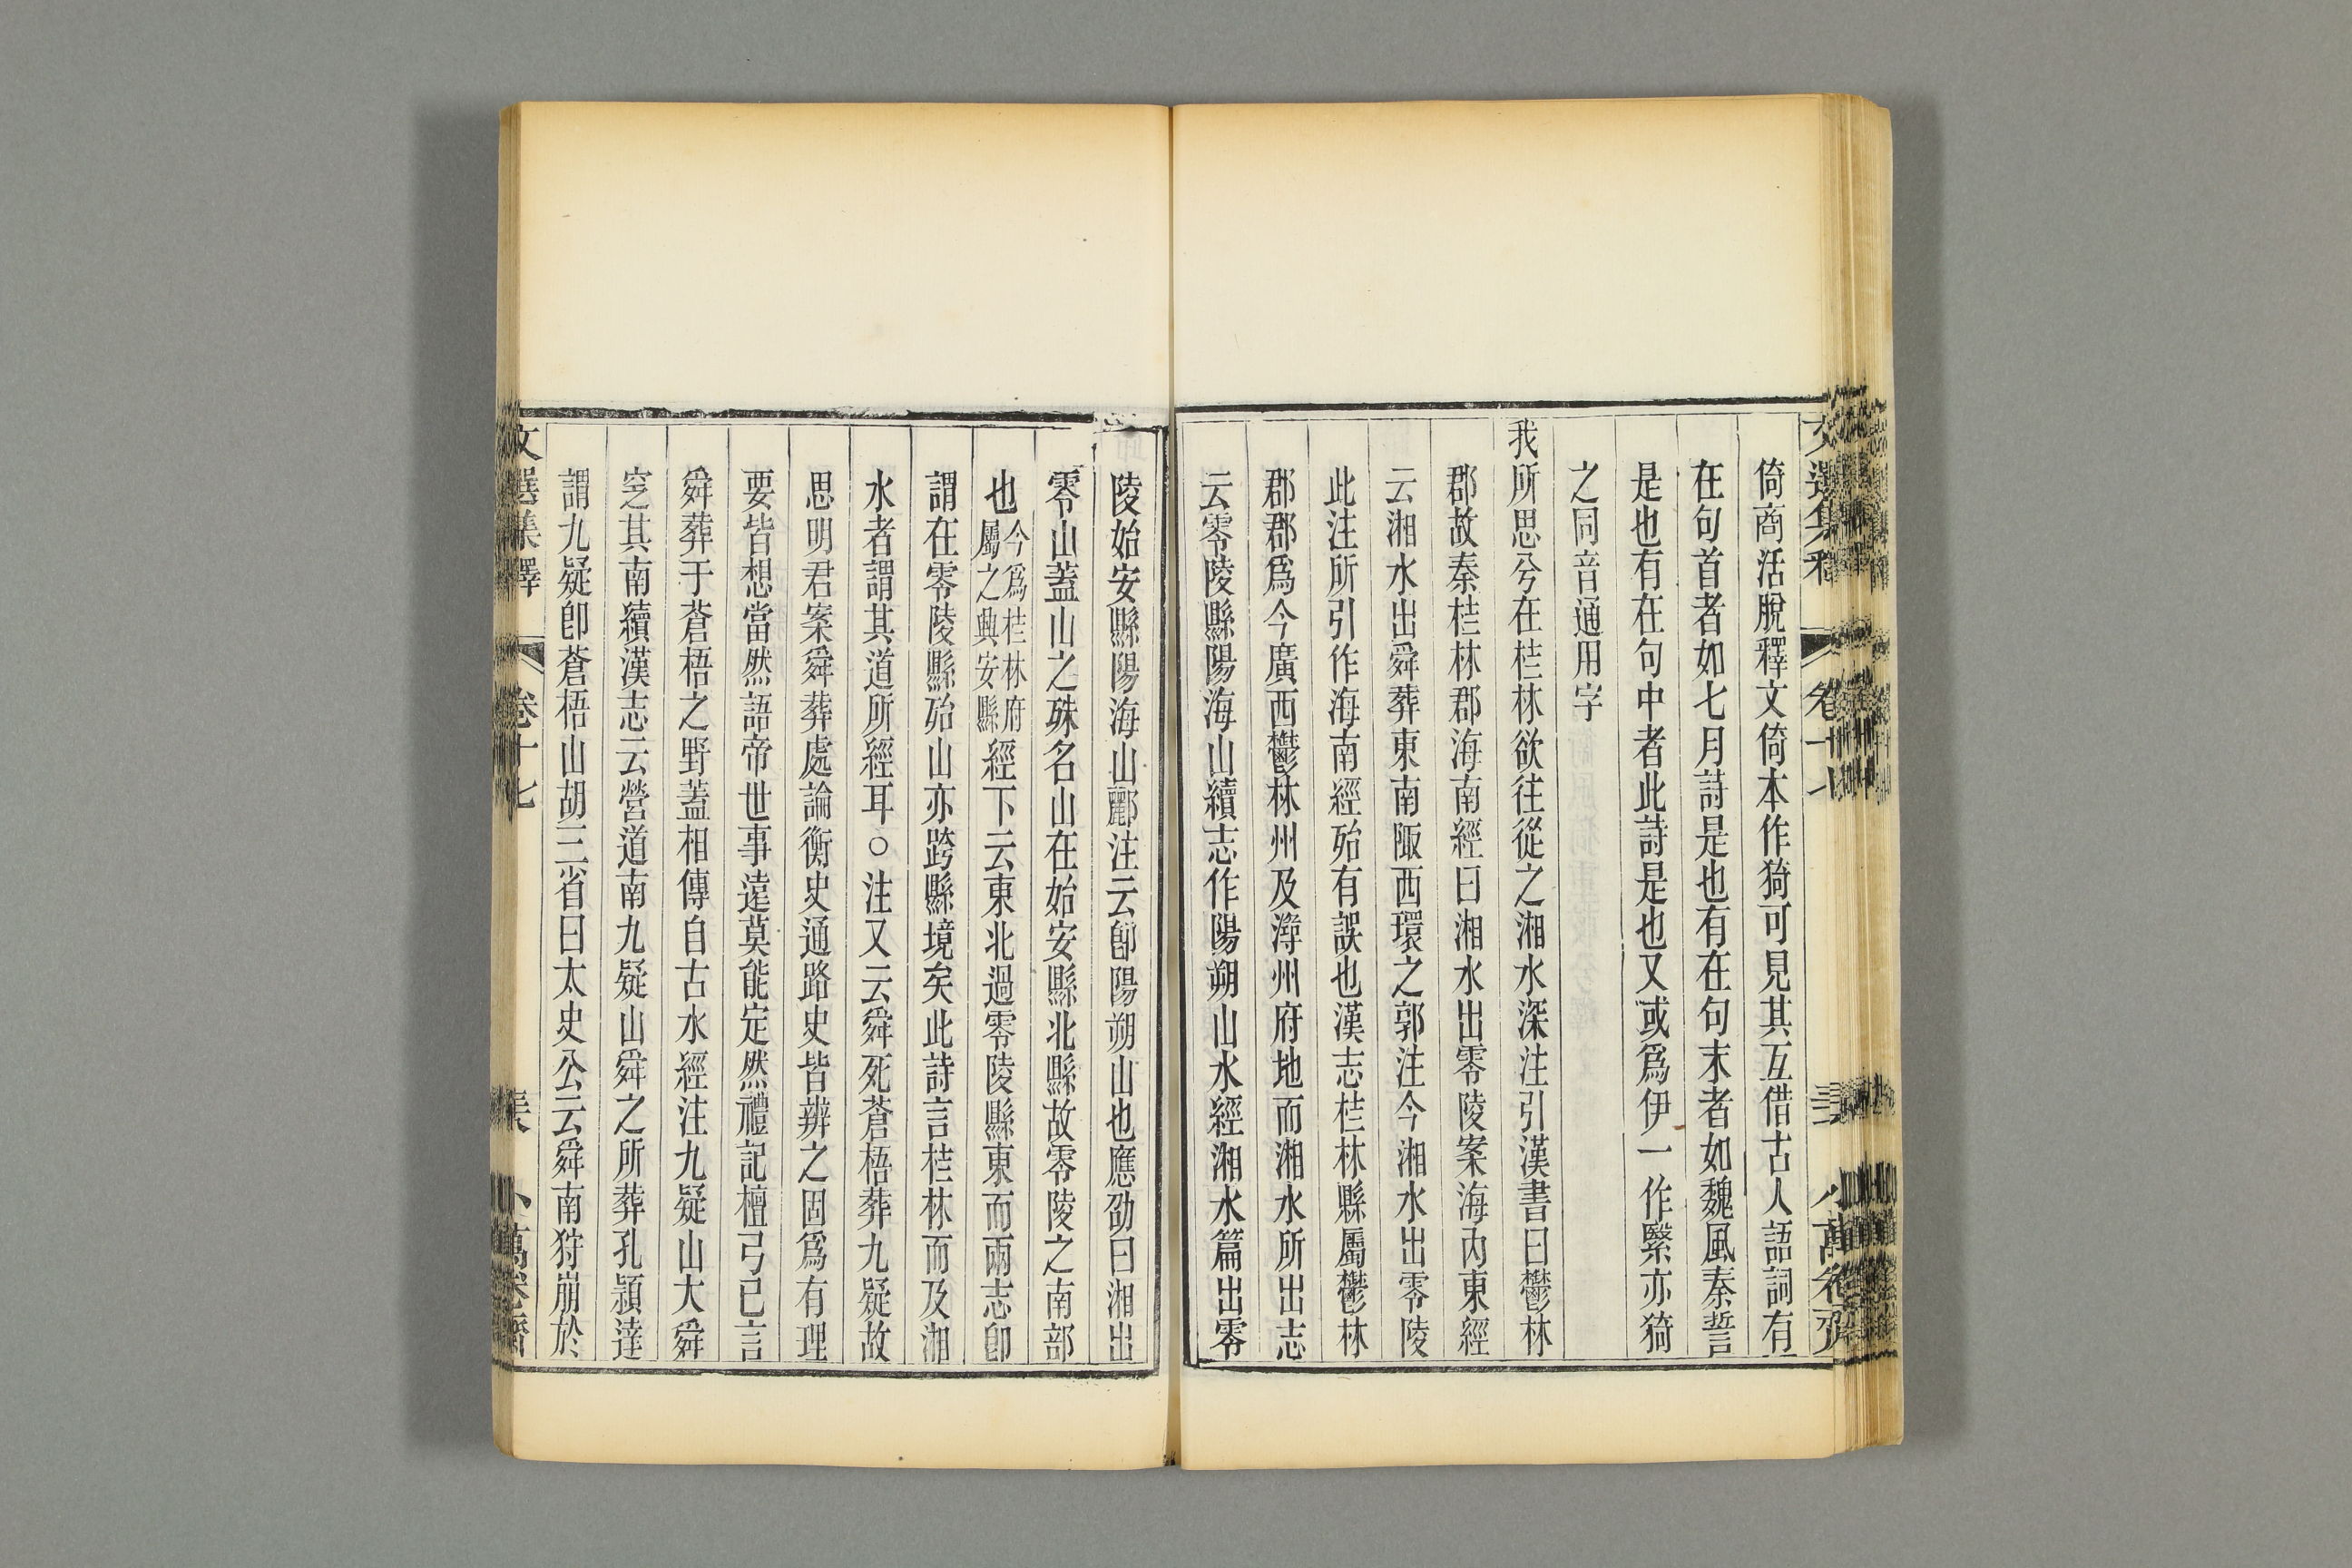 倚商活脫釋文倚本作猗可見其互借古人語詞有
在句首者如七月詩是也有在句末者如魏風秦誓
是也有在句中者此詩是也又或爲伊一作繄亦猗
之同音通用字
我所思兮在桂林欲往從之湘水深注引漢書曰鬱林
郡故秦桂林郡海南經曰湘水出零陵案海內東經
云湘水出舜葬東南陬西環之郭注今湘水出零陵
此注所引作海南經殆有誤也漢志桂林縣屬鬱林
郡郡爲今廣西鬱林州及潯州府地而湘水所出志
云零陵縣陽海山續志作陽朔山水經湘水篇出零
陵始安縣陽海山酈注云卽陽朔山也應劭曰湘出
零山蓋山之殊名山在始安縣北縣故零陵之南部
也今爲桂林府屬之興安縣經下云東北過零陵縣東而兩志卽
謂在零陵縣殆山亦跨縣境矣此詩言桂林而及湘
水者謂其道所經耳○注又云舜死蒼梧葬九疑故
思明君案舜葬處論衡史通路史皆辨之固爲有理
要皆想當然語帝世事遠莫能定然禮記檀弓已言
舜葬于蒼梧之野蓋相傳自古水經注九疑山大舜
窆其南續漢志云營道南九疑山舜之所葬孔穎達
謂九疑卽蒼梧山胡三省曰太史公云舜南狩崩於
文選集釋 卷十七